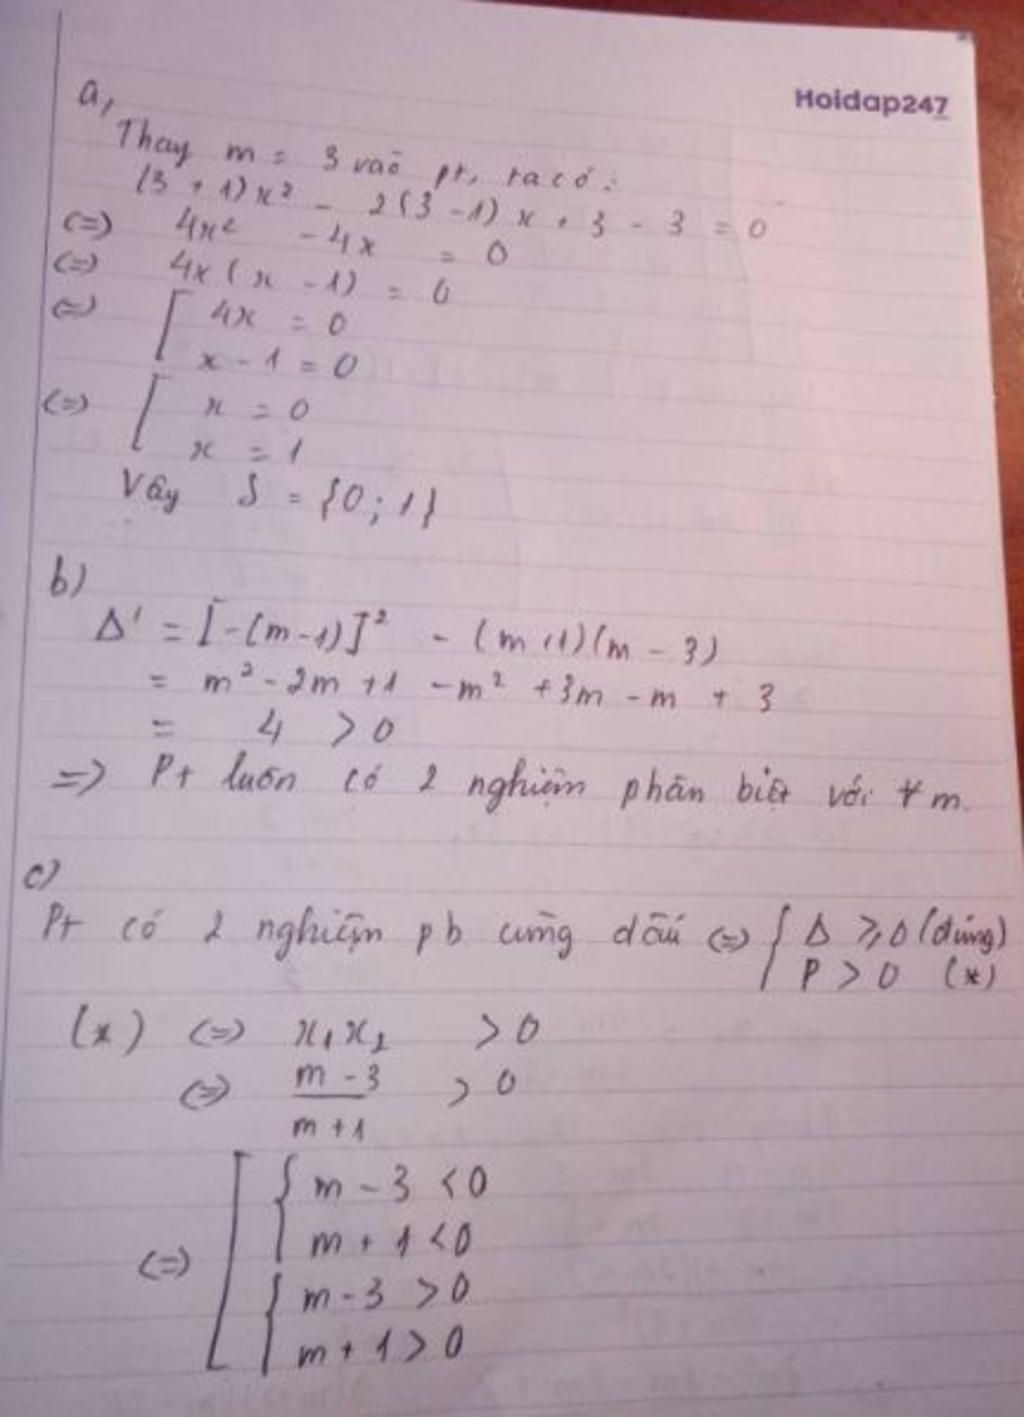 Hoidap247
a,
Thay m = 3 vào pt, ta có:
(3 + 1)x² - 2(3 - 1)x + 3 - 3 = 0
(=) 4x² - 4x = 0
(=) 4x(x - 1) = 0
(=) [ 4x = 0
x - 1 = 0
(=) [ x = 0
x = 1
Vậy S = {0; 1}
b)
Δ' = [-(m-1)]² - (m+1)(m - 3)
= m² - 2m + 1 - m² + 3m - m + 3
= 4 > 0
=> Pt luôn có 2 nghiệm phân biệt với ∀ m.
c)
Pt có 2 nghiệm pb cùng dấu (=) { Δ ⩾ 0 (đúng)
P > 0 (*)
(*) (=) x₁x₂ > 0
(=) m - 3 / m + 1 > 0
(=) [ { m - 3 < 0
m + 1 < 0
{ m - 3 > 0
m + 1 > 0